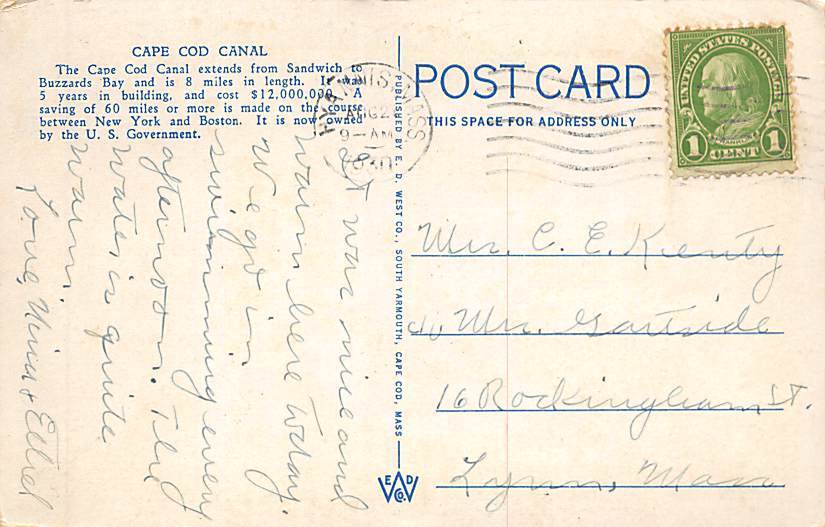 CAPE COD CANAL
The Cape Cod Canal extends from Sandwich to
Buzzards Bay and is 8 miles in length. It was
5 years in building, and cost $12,000,000. A
saving of 60 miles or more is made on the course
between New York and Boston. It is now owned
by the U. S. Government.
It was nice and
warm here today.
We go in
swimming every
afternoon. The
water is quite
warm.
Love, Nina & Ethel
PUBLISHED BY E. D. WEST CO., SOUTH YARMOUTH, CAPE COD, MASS
E D
W
Co.
POST CARD
THIS SPACE FOR ADDRESS ONLY
HYANNIS MASS
AUG 2
9-AM
UNITED STATES POSTAGE
FRANKLIN
1 CENT 1
Mrs. C. E. Kienty
c/o Mrs. Gartside
16 Rockingham St.
Lynn, Mass